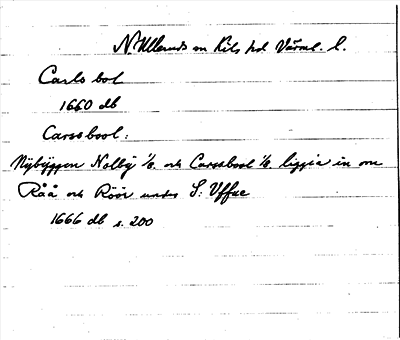 N. Ulleruds sn Kils hd Värml. l.
Carlsbol
1660 db
Carssbool:
Nybÿggen Nolbÿ 1/8. och Carssbool 1/8. liggia in om
Råå och Röör under S: Uffue
1666 db s. 200